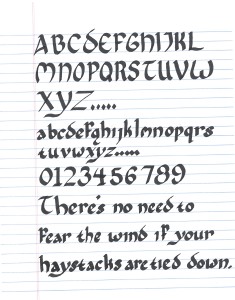 ABCDEFGHIJKL
MNOPQRSTUVW
XYZ.....
abcdefghijklmnopqrs
tuvwxyz.....
0123456789
There's no need to
fear the wind if your
haystacks are tied down.